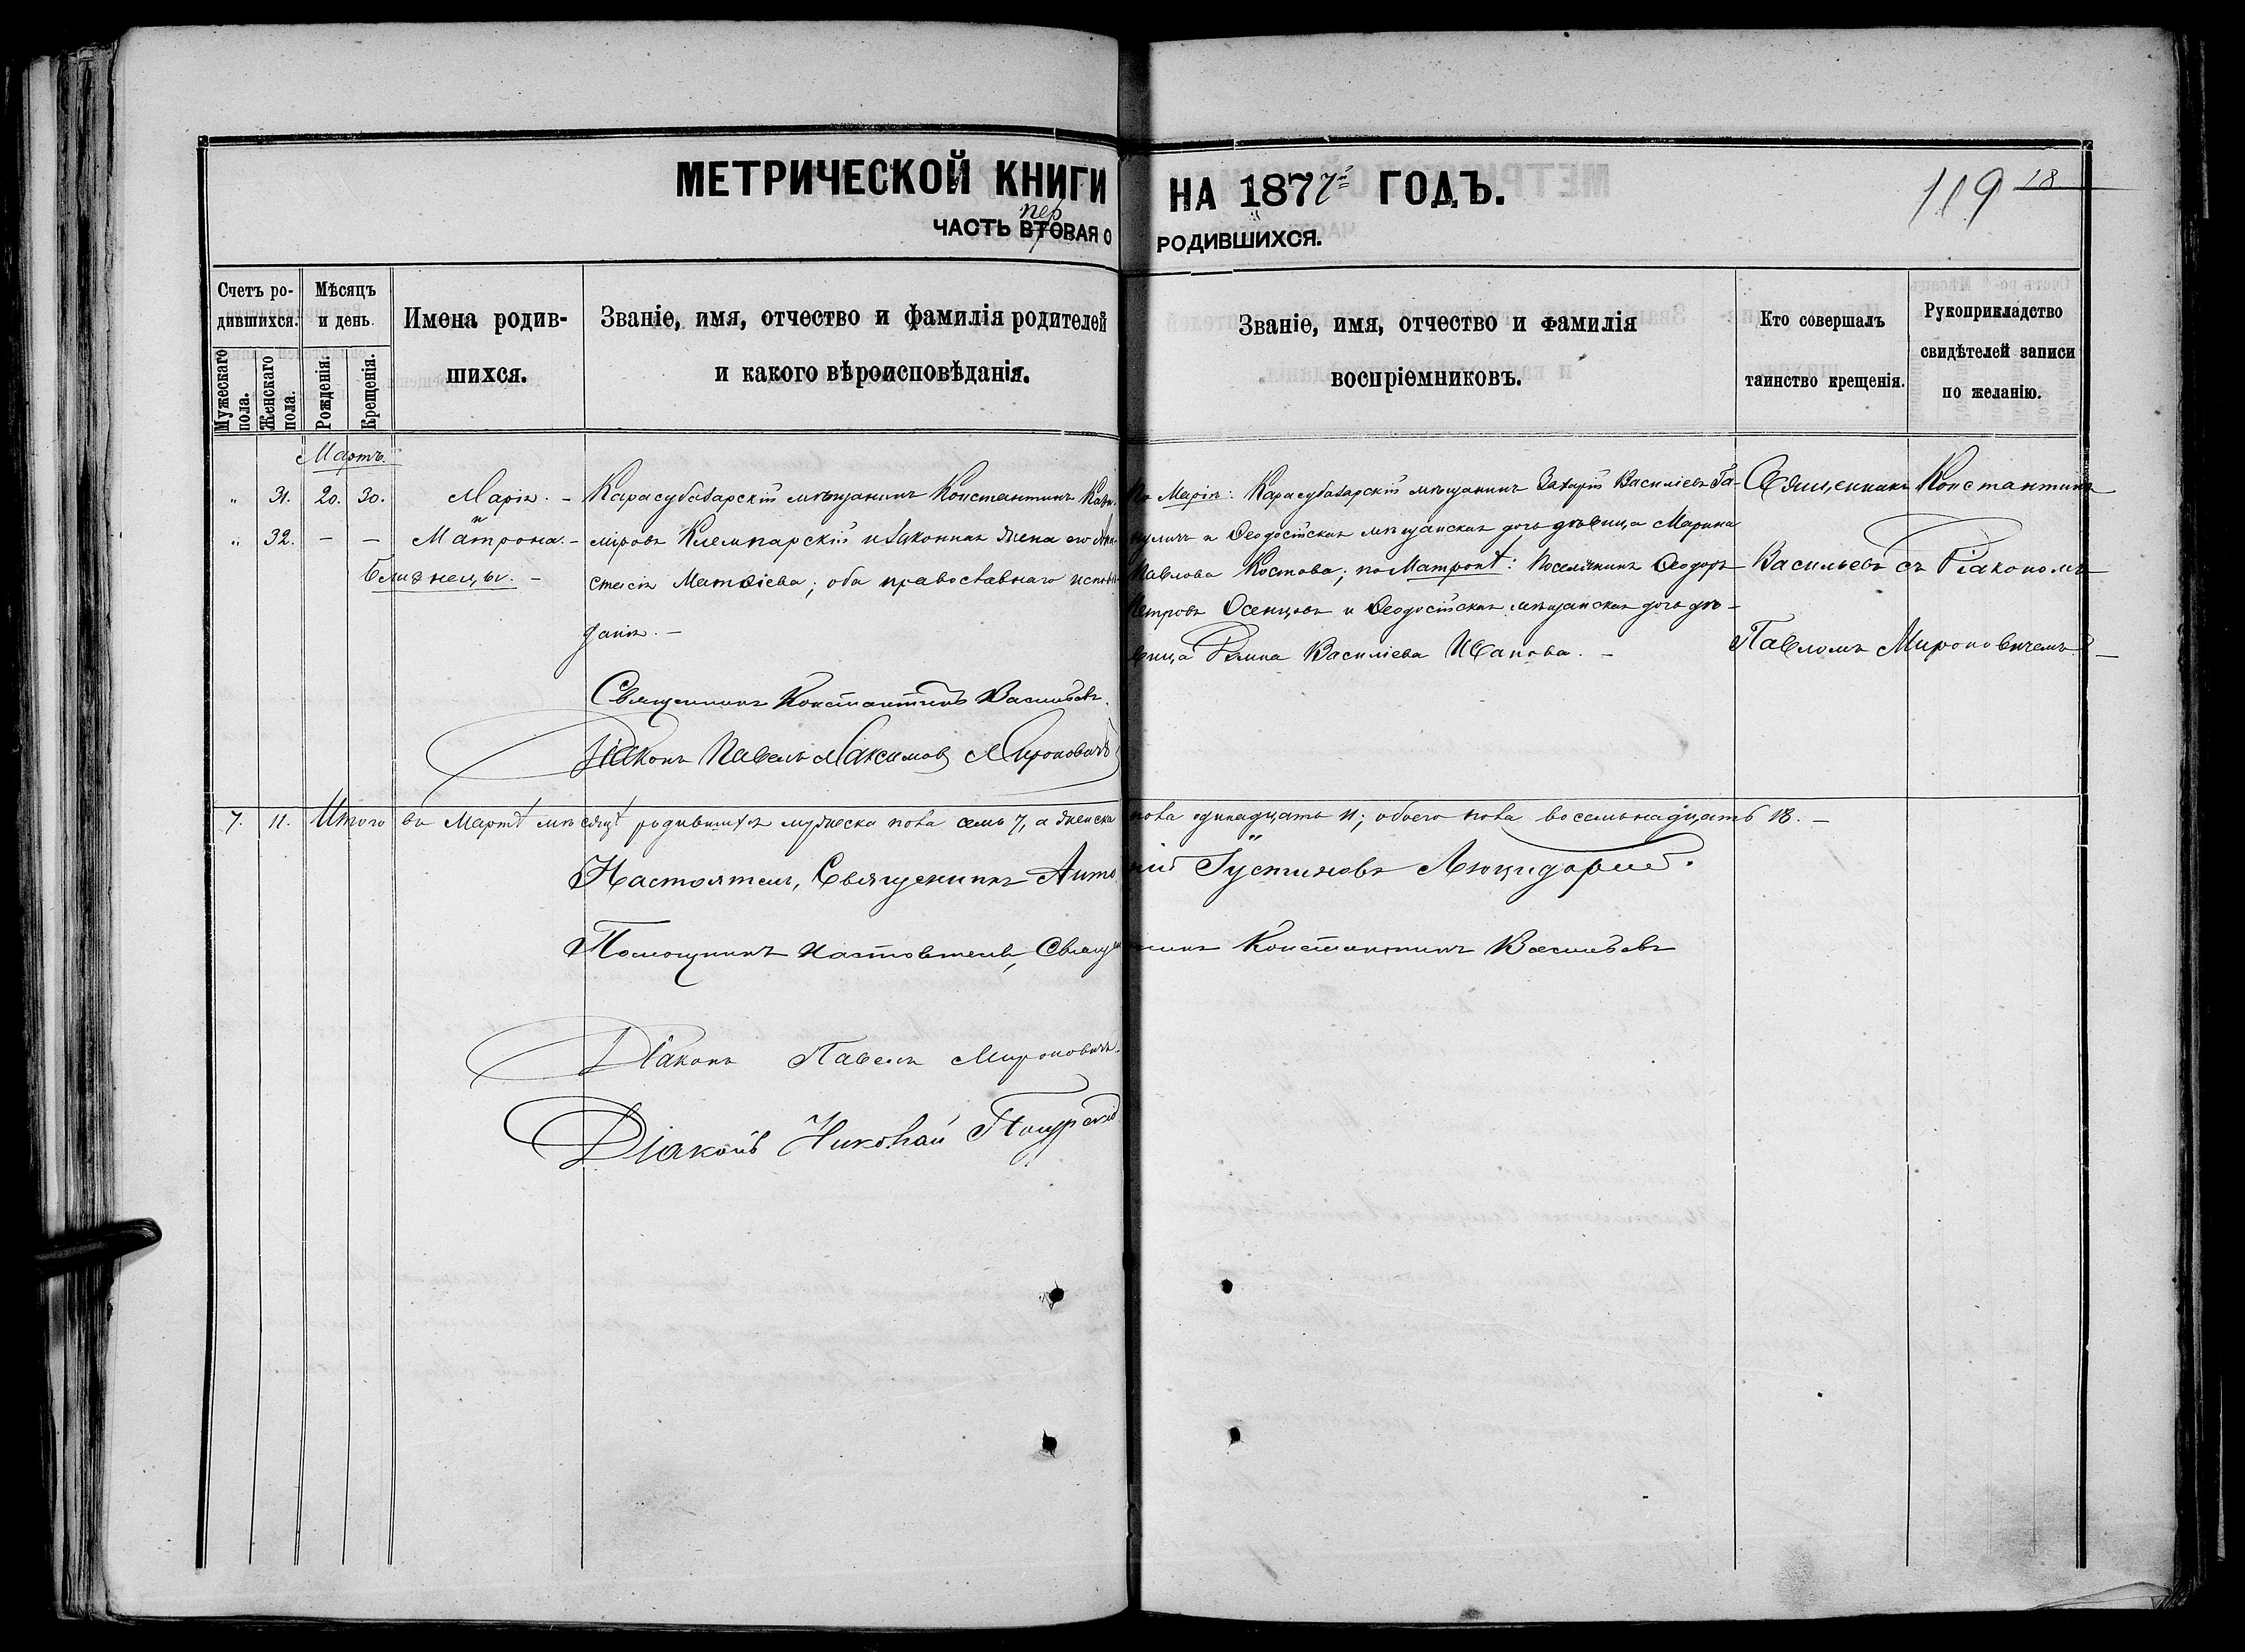 МЕТРИЧЕСКОЙ КНИГИ НА 1877й ГОДЪ.
119 18
пер
ЧАСТЬ ВТОРАЯ О РОДИВШИХСЯ.
Счетъ родившихся.
Мужескаго пола.
Женскаго пола.
Мѣсяцъ и день.
Рожденія.
Крещенія.
Имена родившихся.
Званіе, имя, отчество и фамилія родителей
и какого вѣроисповѣданія.
Званіе, имя, отчество и фамилія
воспріемниковъ.
Кто совершалъ
таинство крещенія.
Рукоприкладство
свидѣтелей записи
по желанію.
Мартъ.
" 31. 20. 30. Марія. –
и
" 32. – – Матрона. –
Близнецы. –
Карасубазарскій мѣщанинъ Константинъ Кази-
міровъ и законная жена его Ана-
стасія Матѳіева; оба православнаго исповѣ-
данія. –
Священникъ Константинъ Васильевъ.
Діаконъ Павелъ Максимовъ Мироновичъ
По Маріи: Карасубазарскій мѣщанинъ Захарій Василіевъ Га-
и Ѳеодосійская мѣщанская дочь дѣвица Марина
Павлова Костова; по Матронѣ: Поселянинъ Ѳеодоръ
Петровъ Осенцовъ и Ѳеодосійская мѣщанская дочь дѣ-
вица Василіева Иванова. –
Священникъ Константинъ
Васильевъ съ Діакономъ
Павломъ Мироновичемъ. –
7. 11. Итого въ Мартѣ мѣсяцѣ родившихся мужеска пола семь 7, а женска пола одинадцать 11; обоего пола восемьнадцать 18. –
Настоятель, Священникъ Антоній Іустиновъ
Помощникъ настоятеля, Священникъ Константинъ Васильевъ
Діаконъ Павелъ Мироновичъ.
Діаконъ Николай